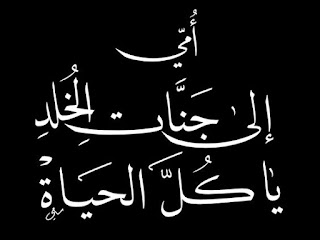 أُمّي
إلى جَنَّات الخُلدِ
يا كُلَّ الحَيَاة